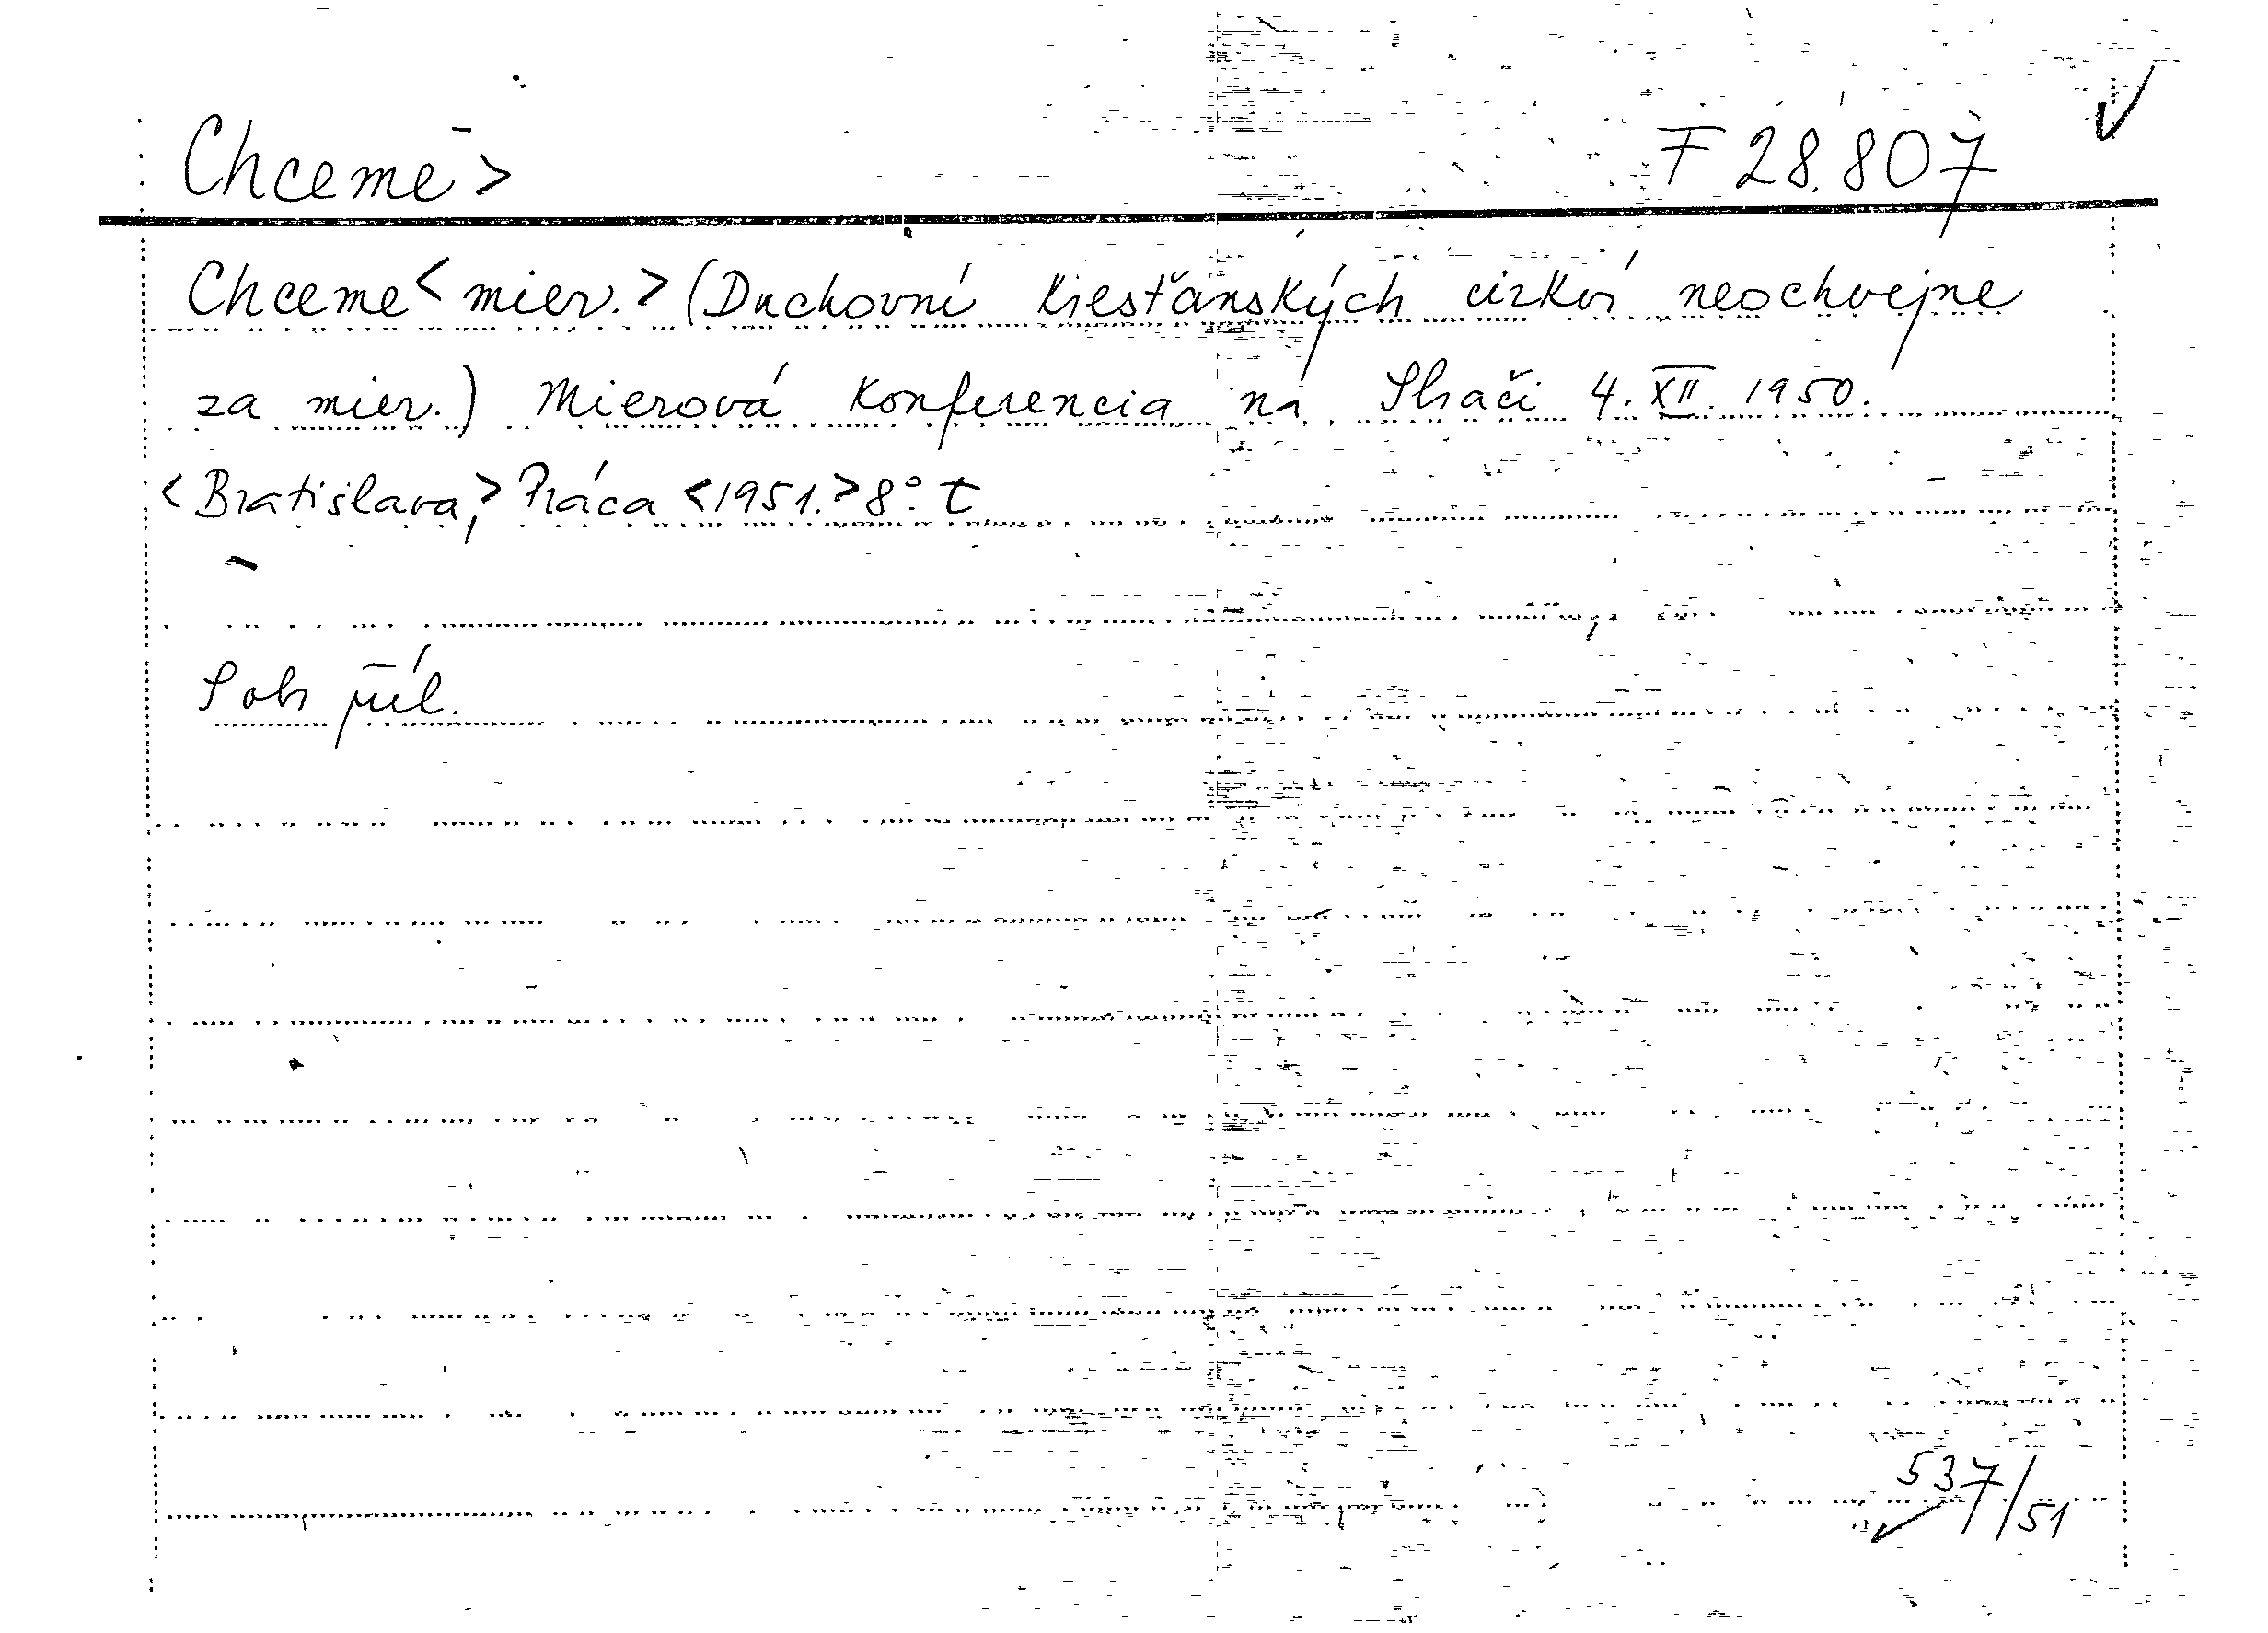 Chceme>
F 28.807
Chceme <mier.> (Duchovní kresťánských cirkví neochvejne
za mier.) Mierová konferencia na Sliači 4. XII. 1950.
<Bratislava,> Práca <1951.> 8°. t
S obr. příl.
537/51